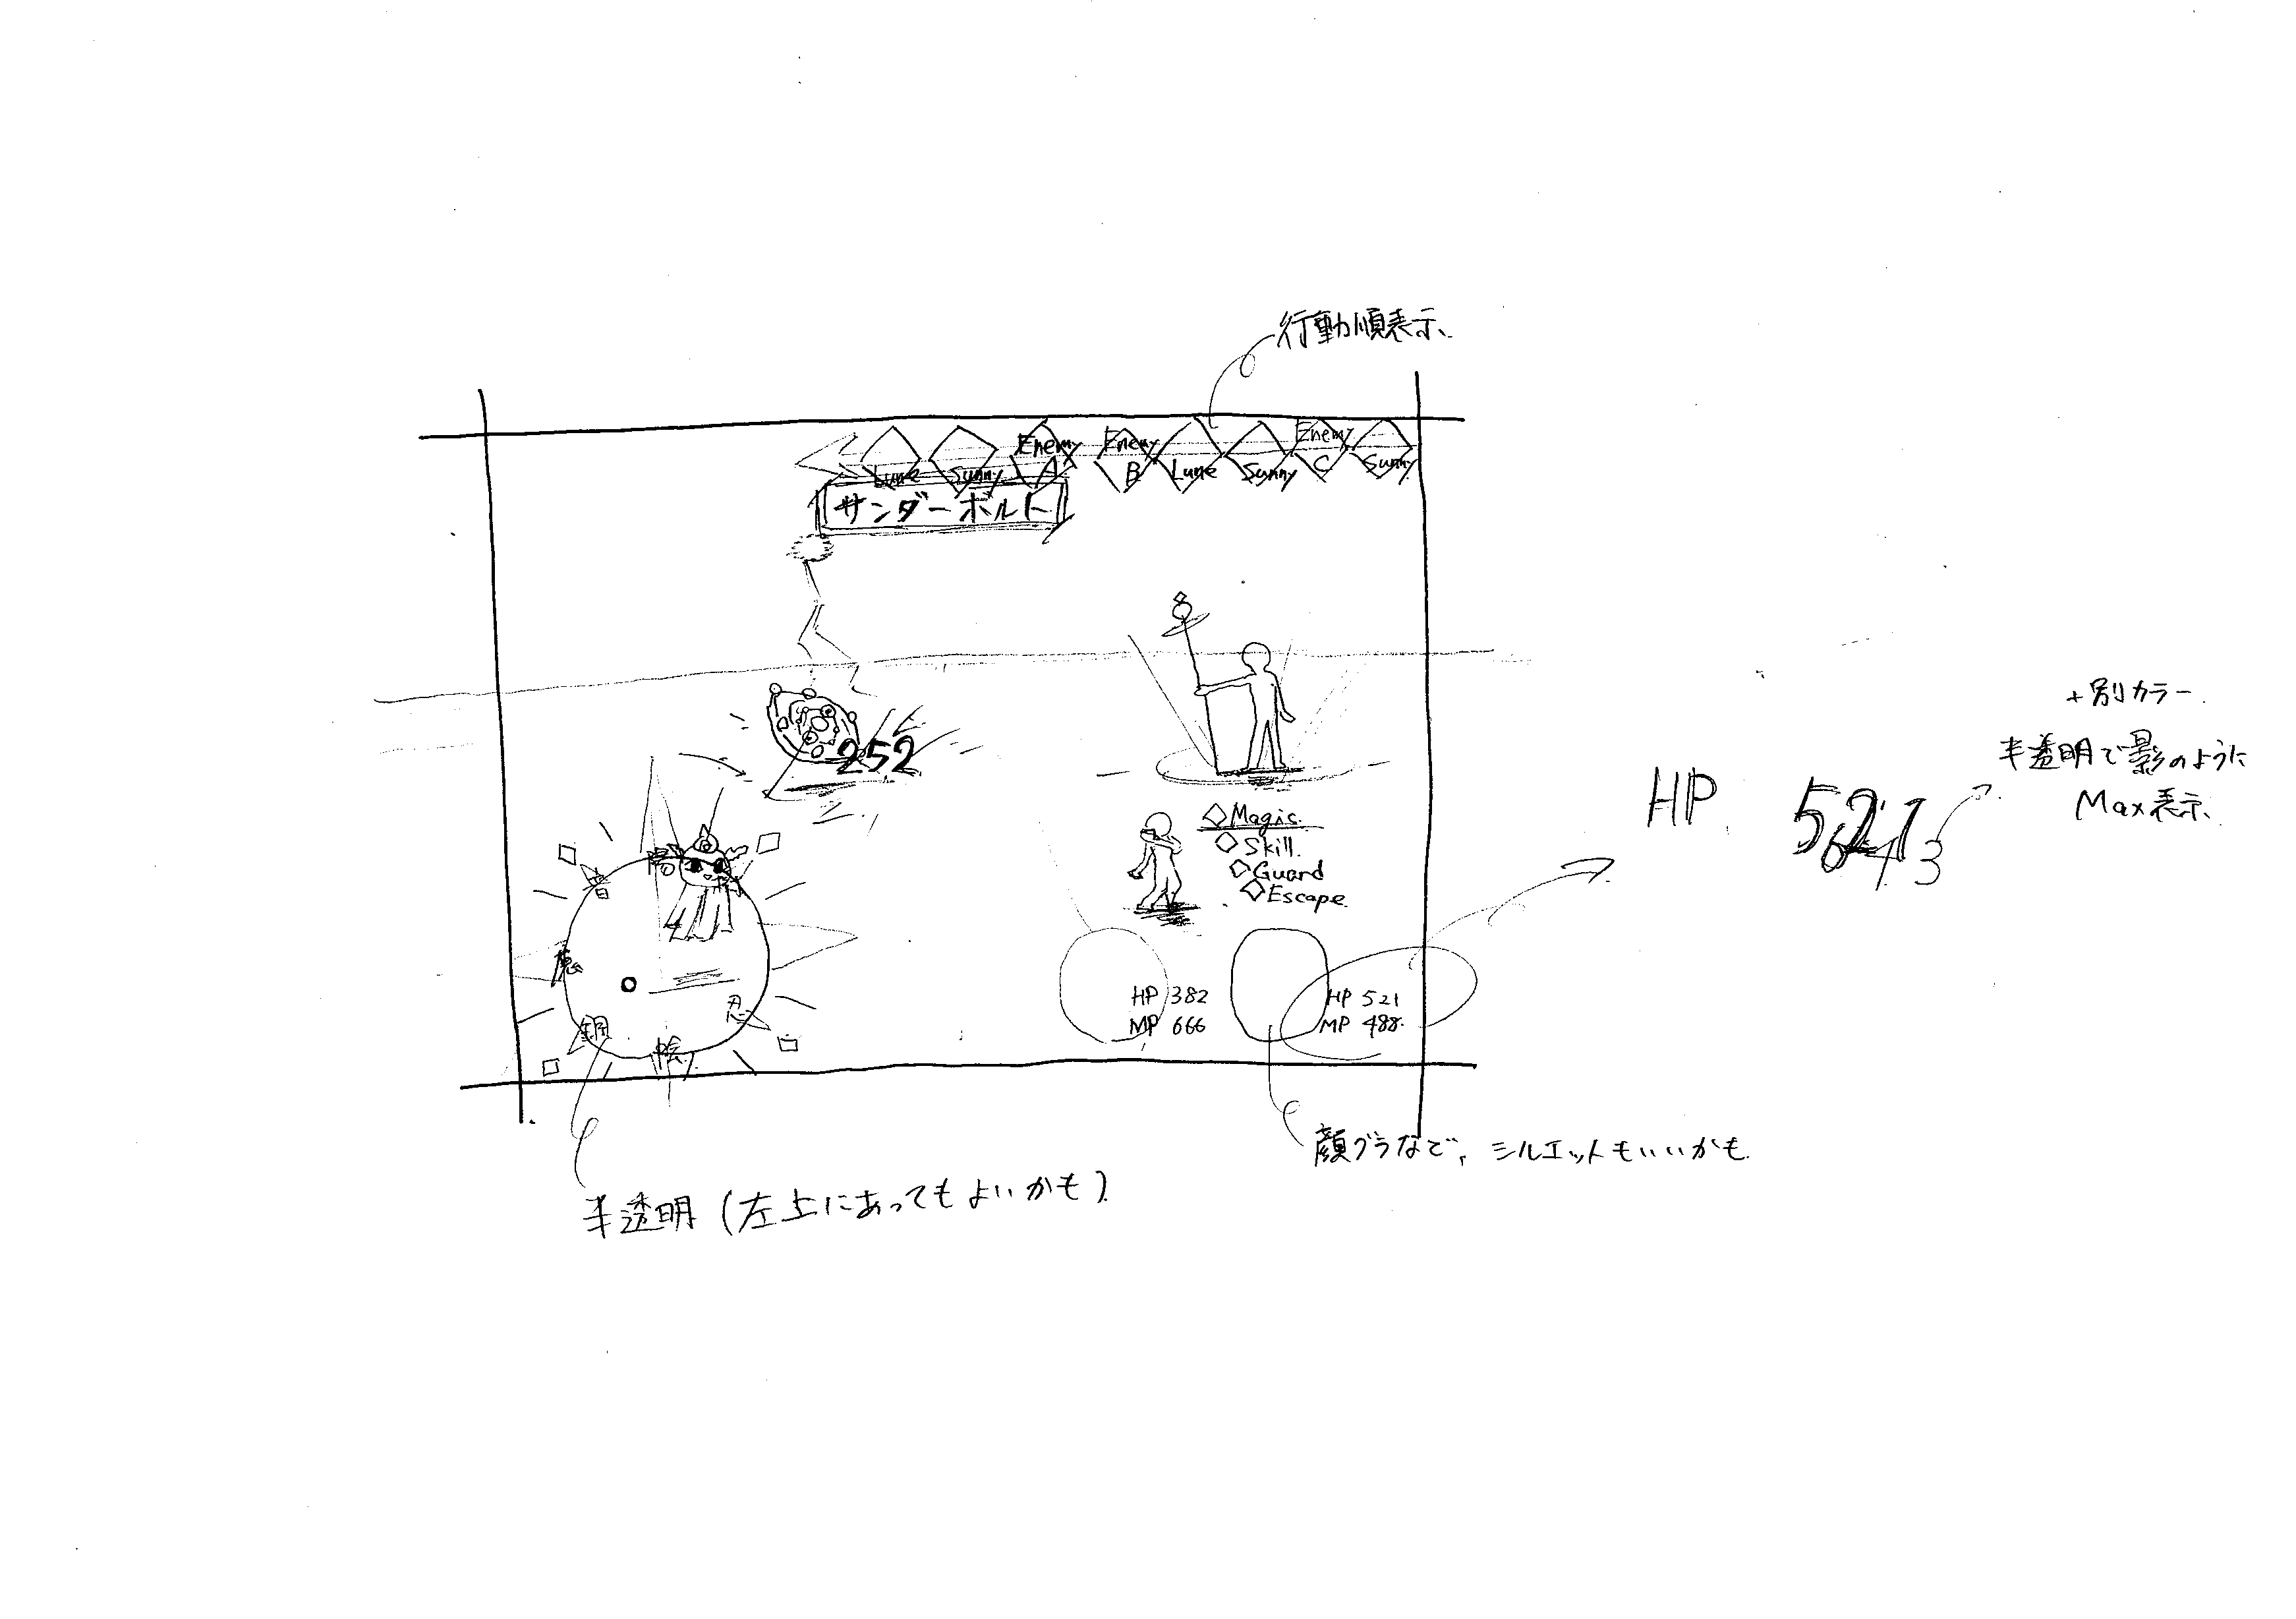 行動順表示
Lune
Sunny
Enemy
A
Enemy
B
Lune
Sunny
Enemy
C
Sunny
サンダーボルト
252
Magic
Skill
Guard
Escape
HP 382
MP 666
HP 521
MP 488
+別カラー
半透明で影のように
Max表示
HP 521
643
陽
陰
忍
鋼
魔
顔グラなど、シルエットもいいかも
半透明(左上にあってもよいかも)